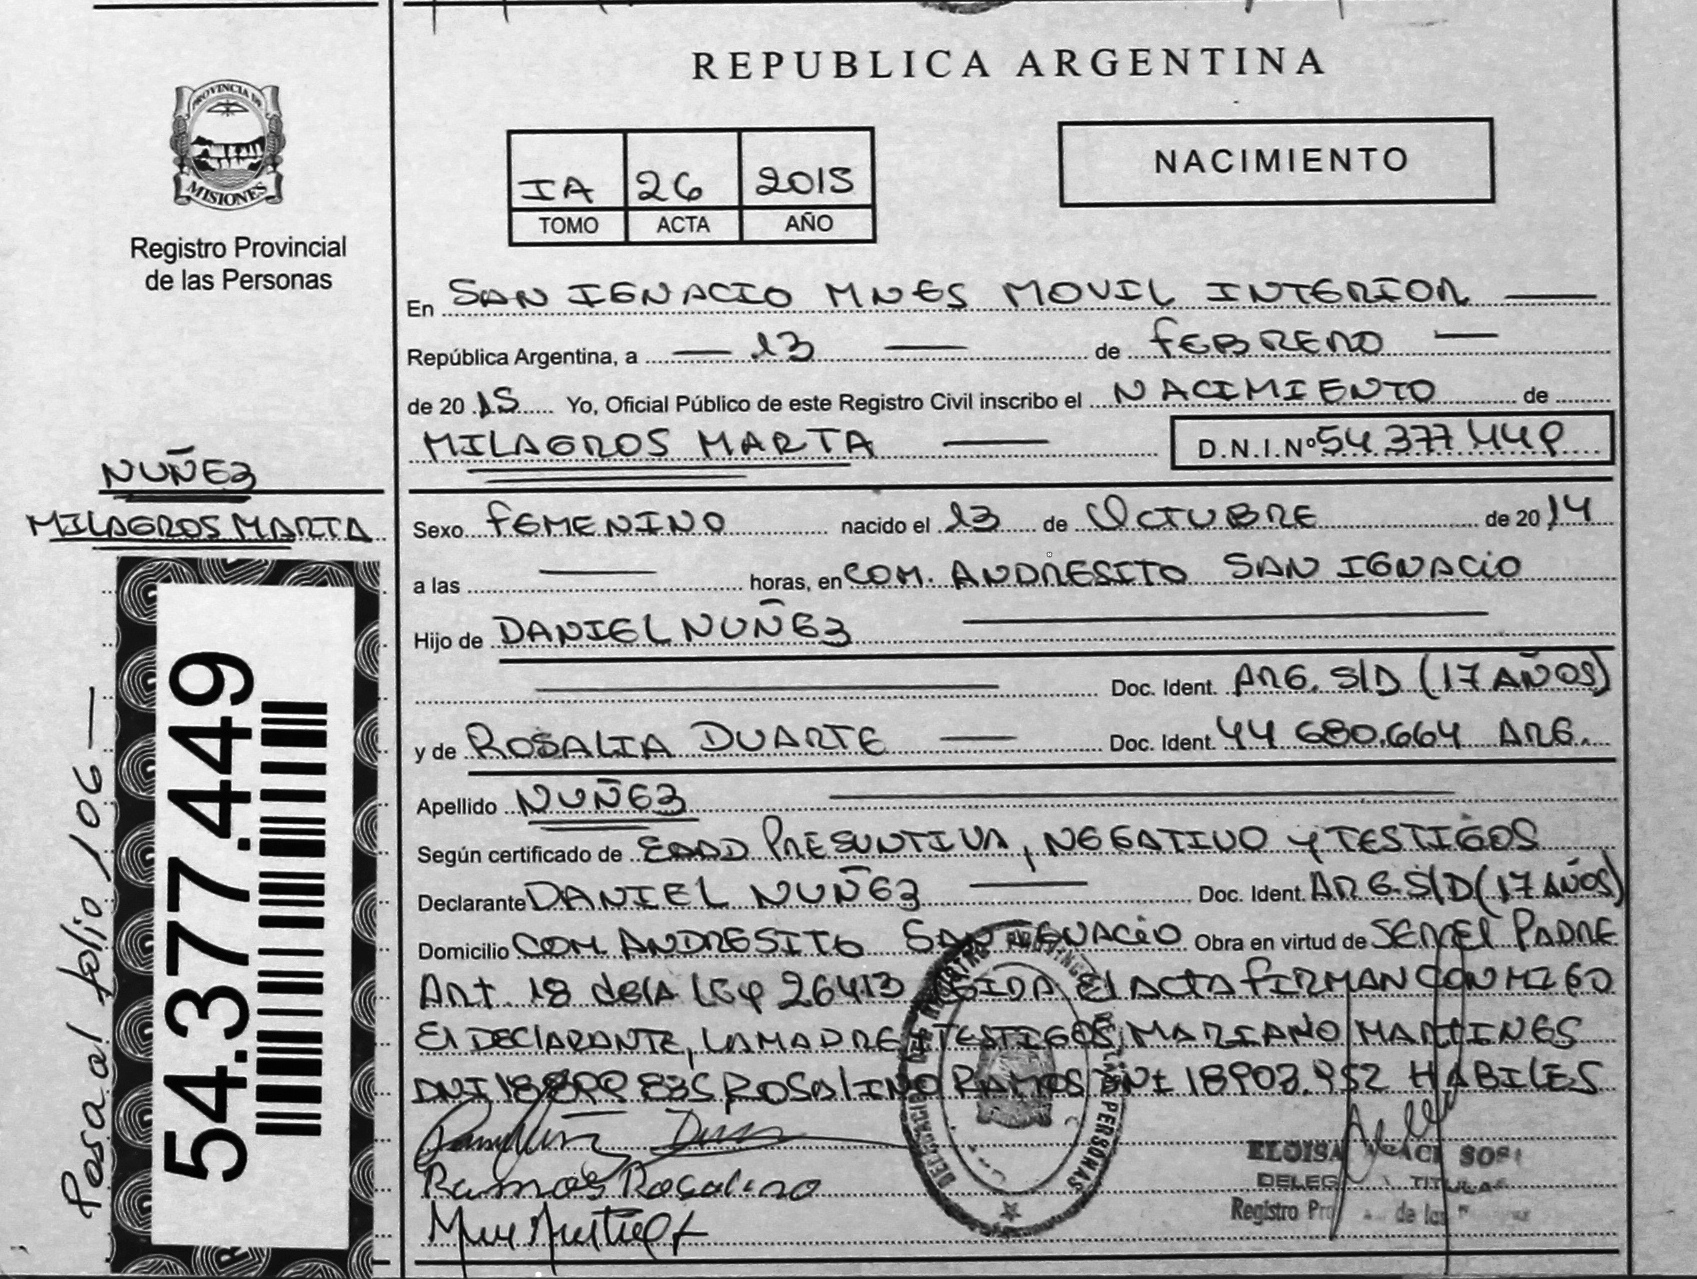 REPUBLICA ARGENTINA
PROVINCIA DE
MISIONES
Registro Provincial
de las Personas
IA 26 2015
TOMO ACTA AÑO
NACIMIENTO
En SAN IGNACIO MNES MOVIL INTERIOR
República Argentina, a 13 de FEBRERO
de 20 15 Yo, Oficial Público de este Registro Civil inscribo el NACIMIENTO de
MILAGROS MARTA D.N.I.Nº 54.377.449
NUÑEZ
MILAGROS MARTA
54.377.449
Pasa al folio 106
Sexo FEMENINO nacido el 13 de OCTUBRE de 20 14
a las horas, en COM. ANDRESITO SAN IGNACIO
Hijo de DANIEL NUÑEZ
Doc. Ident. ARG. S/D (17 AÑOS)
y de ROSALIA DUARTE Doc. Ident. 44 680.664 ARG.
Apellido NUÑEZ
Según certificado de EDAD PRESUNTIVA, NEGATIVO y TESTIGOS
Declarante DANIEL NUÑEZ Doc. Ident. ARG. S/D (17 AÑOS)
Domicilio COM. ANDRESITO SAN IGNACIO Obra en virtud de SER EL PADRE
Art. 18 de la Ley 26413 LEIDA El ACTA FIRMAN CONMIGO
El DECLARANTE, LA MADRE y TESTIGOS, MARIANO MARTINES
DNI 18899 835 ROSALINO RAMOS DNI 18903.952 HABILES
Ramos Rosalino
ELOISA SOS
DELEG TITULAR
Registro Pro de las
PERSONAS